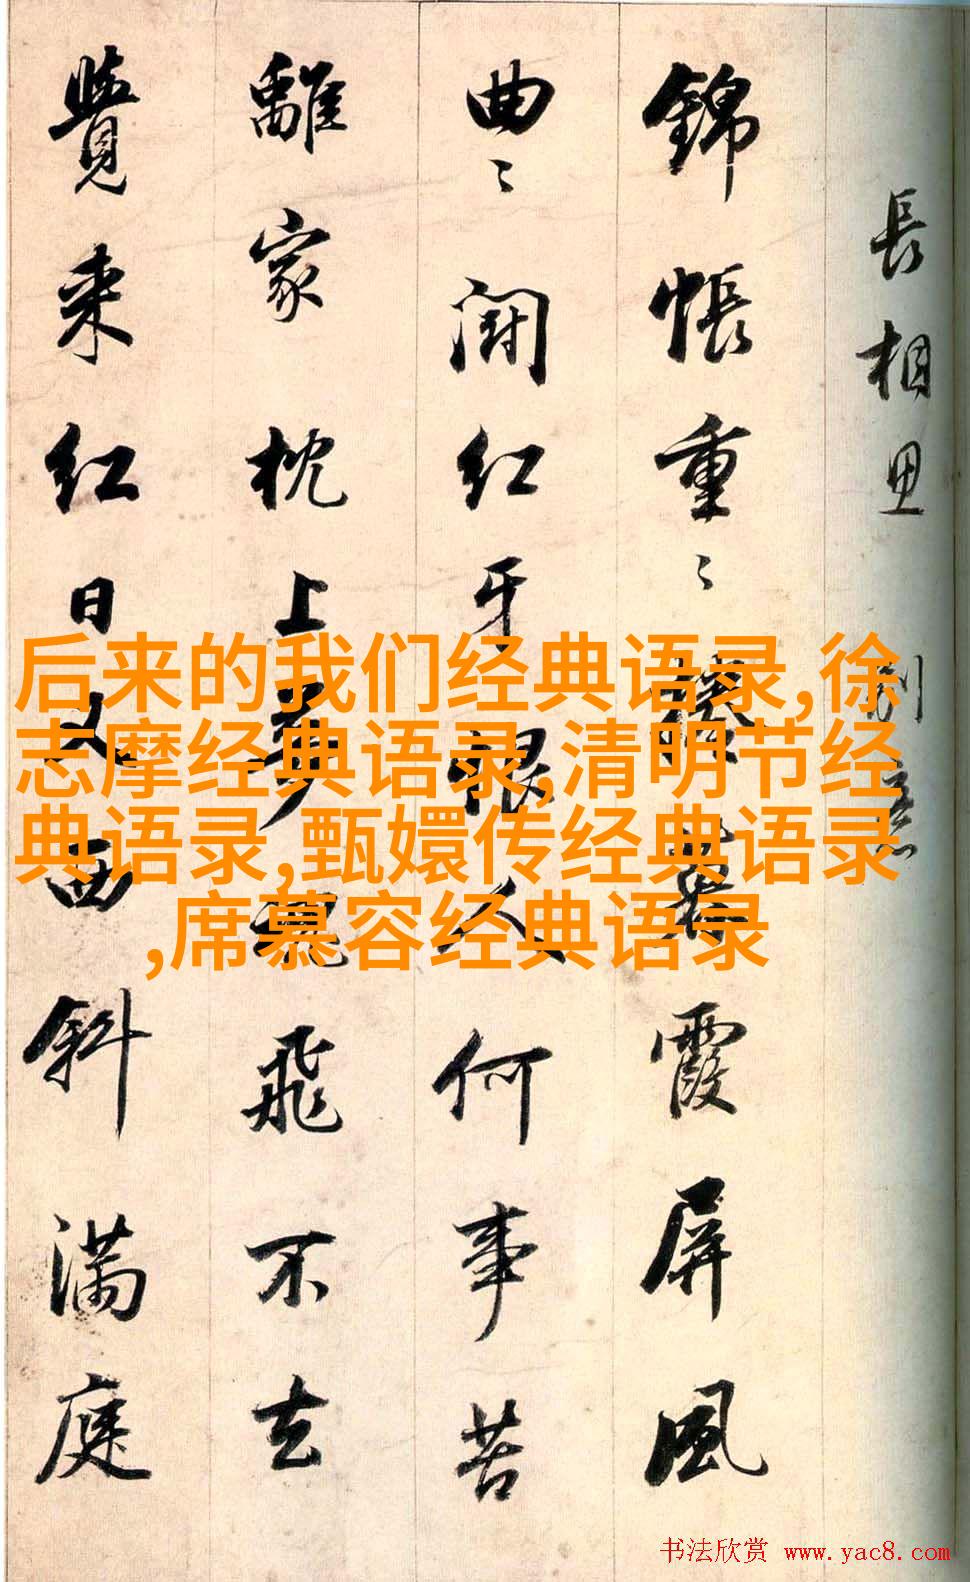 長相思 別意
錦帳重〻捲暮霞屏風
曲〻鬪红牙恨人何事苦
離家枕上夢魂飛不去
覺来红日又西斜满庭
后来的我们经典语录,徐
志摩经典语录,清明节经
典语录,甄嬛传经典语录
,席慕容经典语录
书法欣赏 www.yac8.com